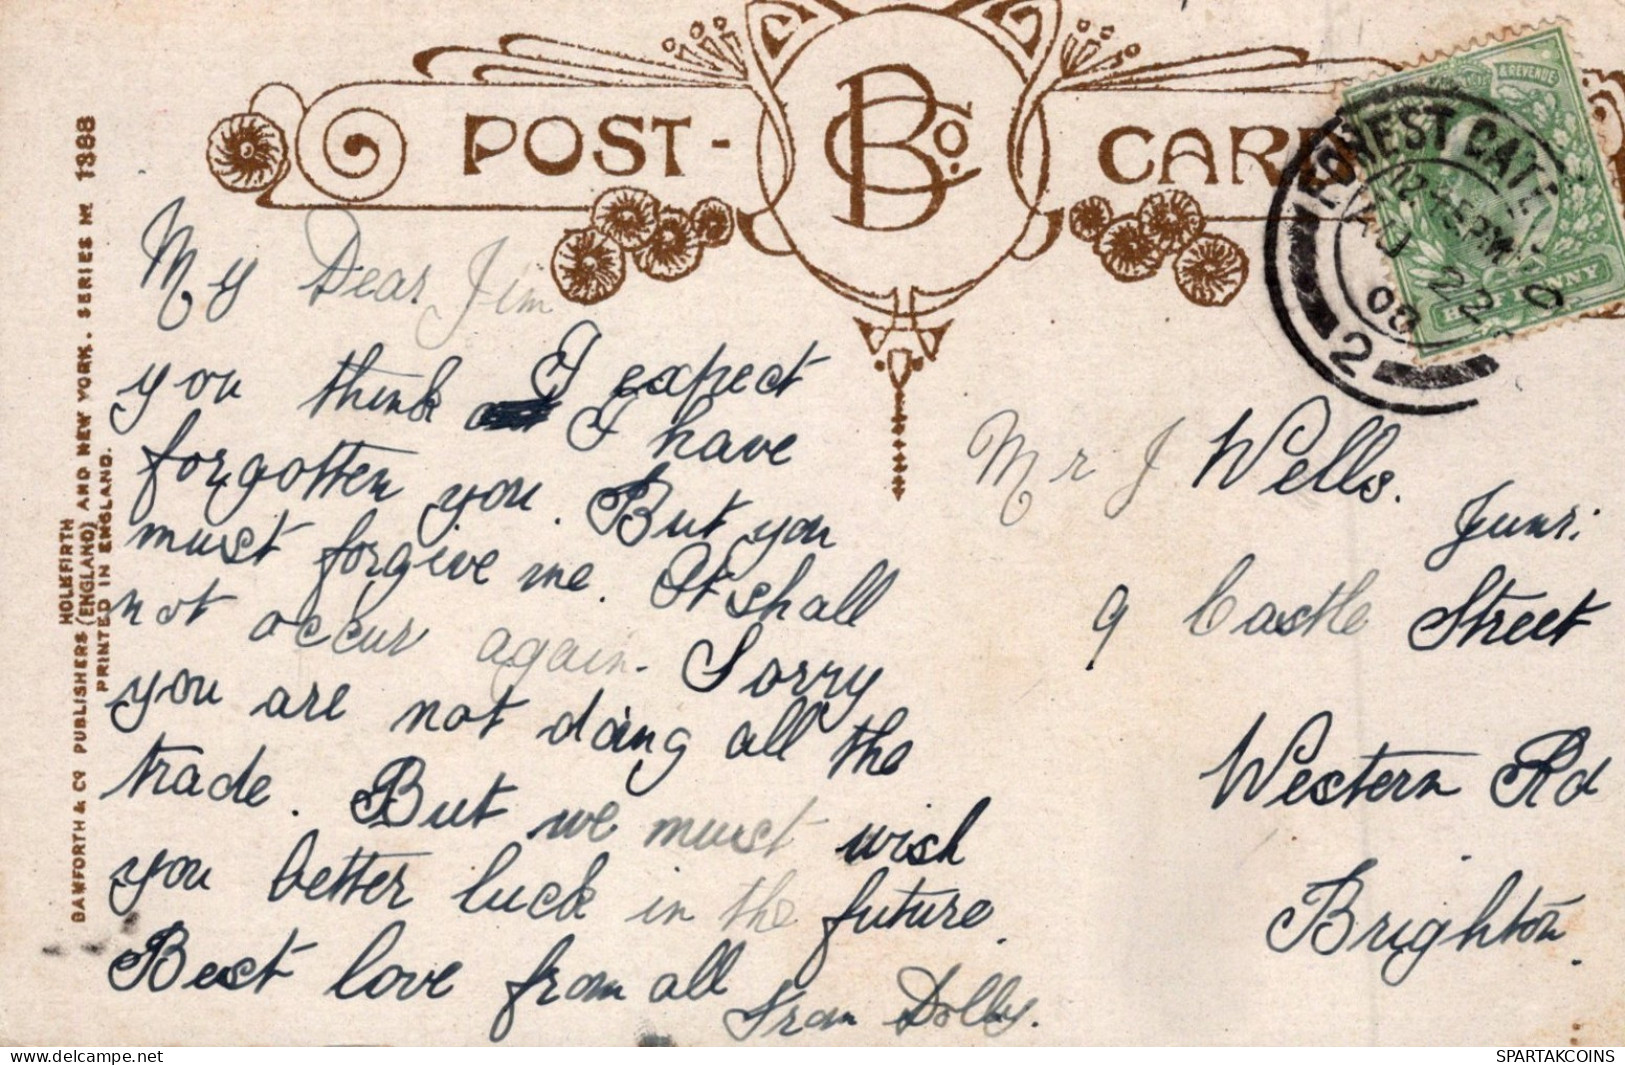 POST- BCo. CARD
& REVENUE
FOREST GATE
12.45PM
AU 22
00
2
HALFPENNY
BAMFORTH & Co PUBLISHERS (ENGLAND) AND NEW YORK. SERIES No 1388
HOLMFIRTH
PRINTED IN ENGLAND.
My Dear Jim
I expect
you think I have
forgotten you. But you
must forgive me. It shall
not occur again. Sorry
you are not doing all the
trade. But we must wish
you better luck in the future.
Best love from all
From Dolly.
Mr J Wells. Junr:
9 Castle Street
Western Rd
Brighton.
SPARTAKCOINS
https://www.delcampe.net